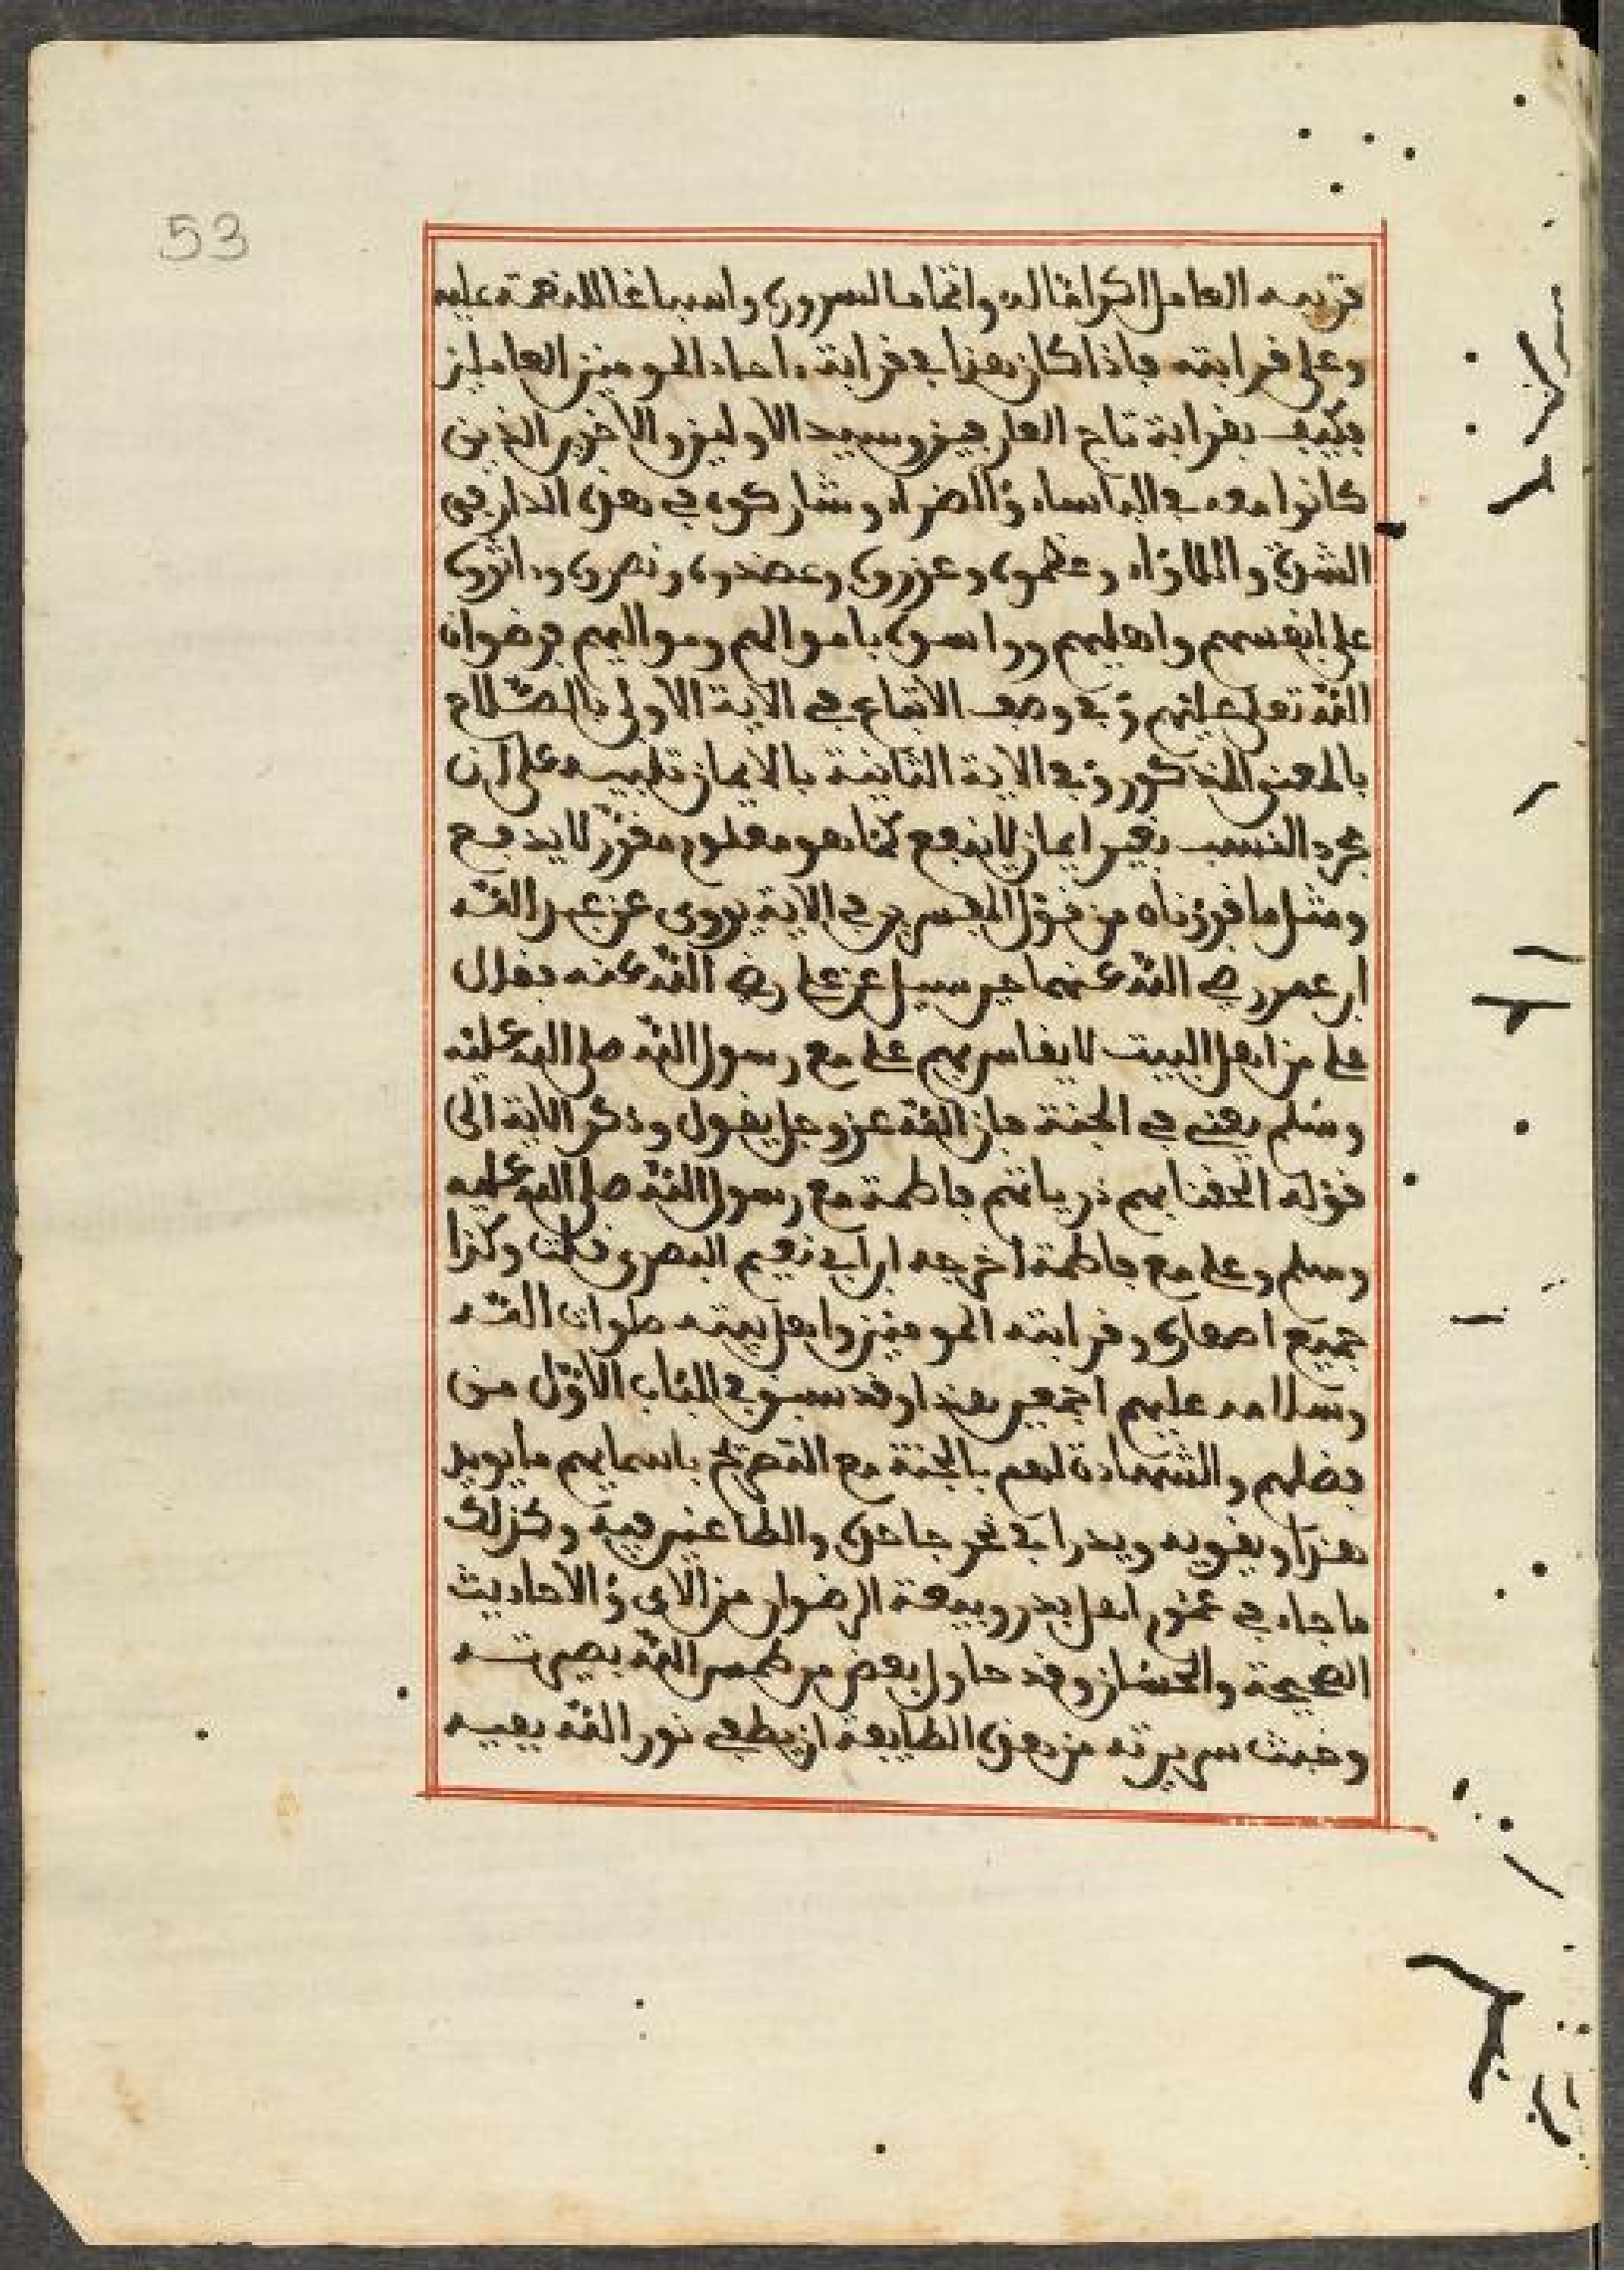 53
قريبه العامل اكراما له واتماما لسروره واسباغا للنعمة عليه
وعلى قرابته فاذا كان هذا في قرابة ءاحاد المومنين العاملين
فكيف بقرابة تاج العارفين وسيد الاولين والاخرين الذين
كانوا معه في الباساء والضراء وشاركوه في هذه الدار في
الشدة واللاواء وعظموه وعزروه وعضدوه ونصروه وءاثروه
على انفسهم واهليهم وواسوه باموالهم ومواليهم فرضوان
الله تعلى عليهم وفي وصف الاتباع في الاية الاولى بالصلاح
بالمعنى المذكور وفي الاية الثانية بالايمان تنبيه على ان
مجرد النسب بغير ايمان لا ينفع كما هو معلوم مقرر لا يدفع
ومثل ما قررناه من قول المفسرين في الاية يروى عن عبد الله
ابن عمر رضي الله عنهما حين سيل عن علي رضي الله عنه فقال
علي من اهل البيت لا يقاس بهم علي مع رسول الله صلى الله عليه
وسلم يعني في الجنة فان الله عز وجل يقول وذكر الاية الى
قوله الحقنا بهم ذرياتهم فاطمة مع رسول الله صلى الله عليه
وسلم وعلي مع فاطمة اخرجه ابن ابي نعيم البصري قلت وكذا
جميع اصحابه وقرابته المومنين واهل بيته صلوات الله
وسلامه عليهم اجمعين هذا وقد سبق في الباب الاول من
فضلهم والشهادة لهم بالجنة مع التصريح باسمايهم ما يويد
هذا ويقويه ويدرا في نحر جاحده والطاعن فيه وكذلك
ما جاء في عموم اهل بدر وبيعة الرضوان من الاي والاحاديث
الصحيحة والحسان وقد حاول بعض من طمس الله بصيرته
وخبث سريرته من هذه الطايفة ان يطفي نور الله بفيه